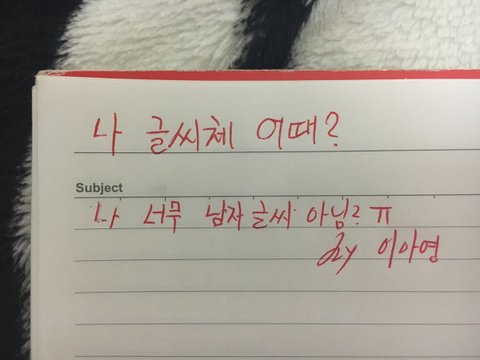 나 글씨체 어때?
Subject
나 너무 남자글씨 아님? ㅠ
by 이아영